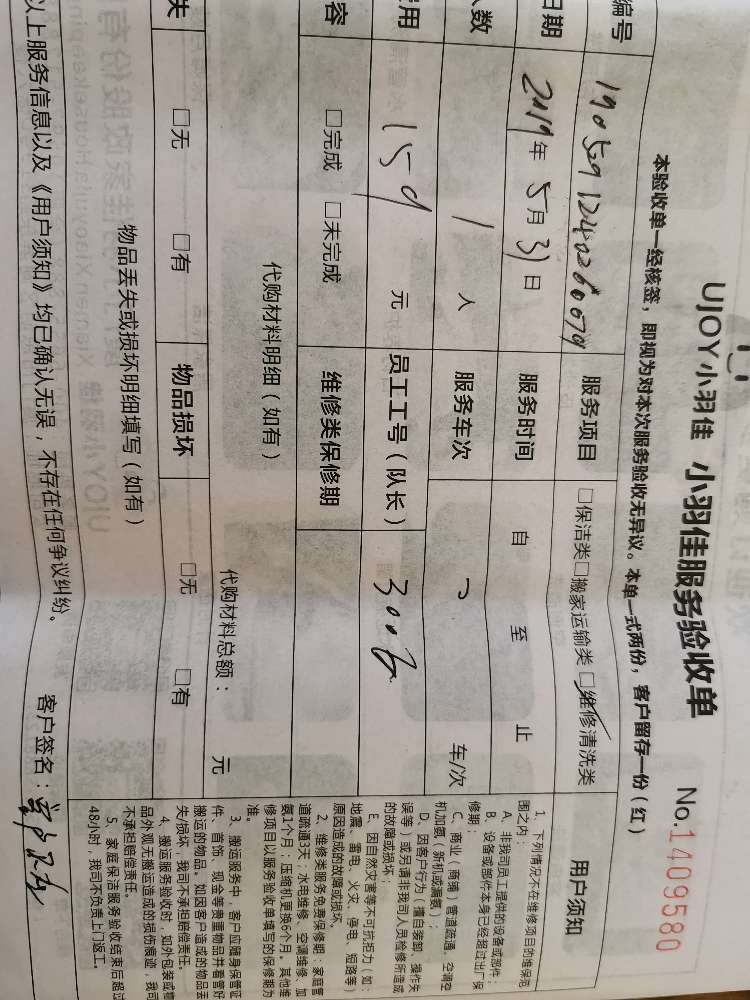 UJOY小羽佳 小羽佳服务验收单 No.1409580
本验收单一经核签，即视为对本次服务验收无异议。本单一式两份，客户留存一份（红）
编号 190529124026007 服务项目 □保洁类□搬家运输类□维修清洗类
日期 2019年5月31日 服务时间 自 至 止
人数 1人 服务车次 车/次
费用 159元 员工工号（队长）
容 □完成 □未完成 维修类保修期
代购材料明细（如有）
代购材料总额： 元
失 □无 □有 物品损坏 □无 □有
物品丢失或损坏明细填写（如有）
以上服务信息以及《用户须知》均已确认无误，不存在任何争议纠纷。 客户签名：
用户须知
1、下列情况不在维修项目的维保范
围之内：
A、非我司员工提供的设备或部件；
B、设备或部件本身已经超过出厂保
修期；
C、商业（商铺）管道疏通、空调空
机加氨（新机或漏氨）；
D、因客户行为（擅自装卸、操作失
误等）或另请非我司人员检修所造成
的故障或损坏；
E、因自然灾害等不可抗拒力（如：
地震、雷电、火灾、停电、短路等）
原因造成的故障或损坏。
2、维修类服务免费保修期：家庭管
道疏通3天；水电维修、空调维修、加
氨1个月；压缩机更换6个月。其他维
修项目以服务验收单填写的保修期为
准。
3、搬运服务中，客户应随身保管证
件、首饰、现金等贵重物品并看管好
搬运的物品。如因客户造成的物品丢
失/损坏，我司不承担赔偿责任。
4、搬运服务验收时，如外包装或物
品外观无搬运造成的损伤痕迹，我司
不承担赔偿责任。
5、家庭保洁服务验收结束后超过
48小时，我司不负责上门返工。